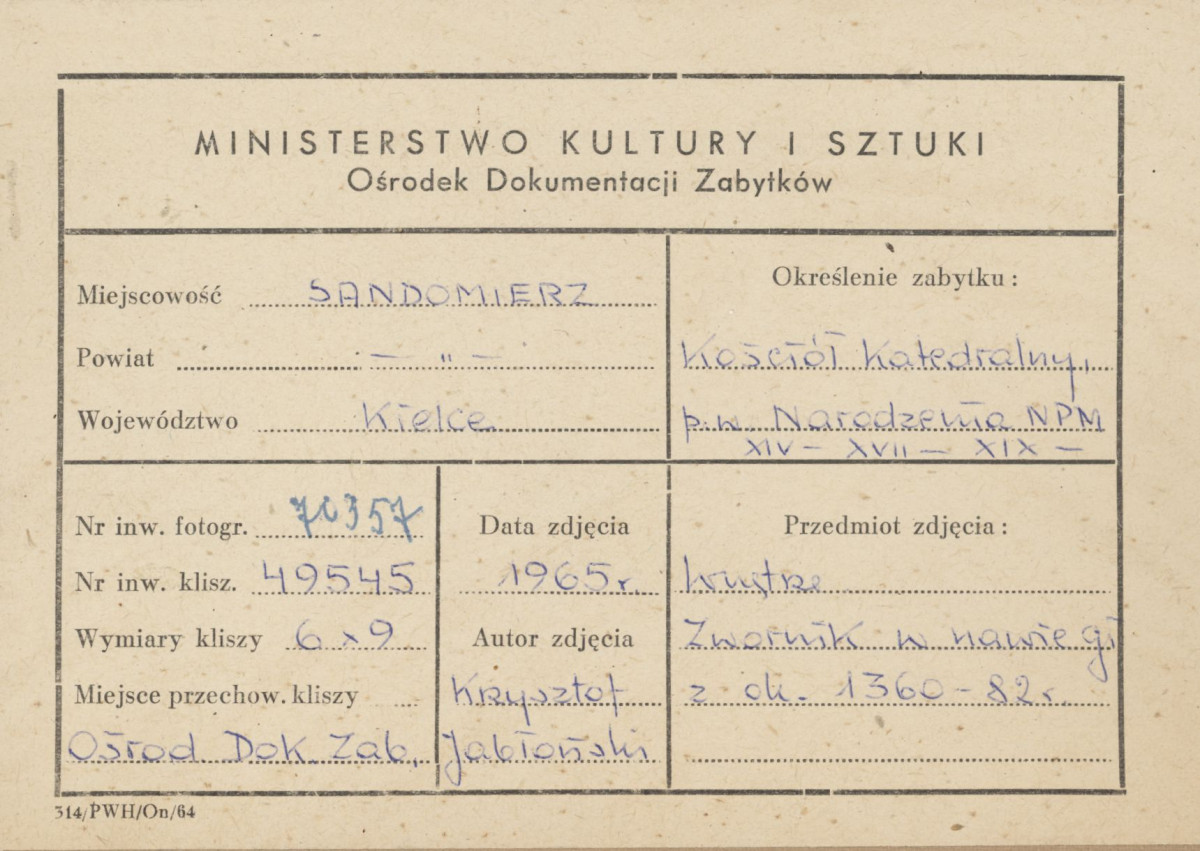 MINISTERSTWO KULTURY I SZTUKI
Ośrodek Dokumentacji Zabytków
Miejscowość SANDOMIERZ
Powiat — " —
Województwo Kielce
Określenie zabytku:
Kościół Katedralny,
p.w. Narodzenia NPM
XIV — XVII — XIX —
Nr inw. fotogr. 70357
Nr inw. klisz. 49545
Wymiary kliszy 6 x 9
Miejsce przechow. kliszy
Ośrod. Dok. Zab.
Data zdjęcia
1965 r.
Autor zdjęcia
Krzysztof
Jabłoński
Przedmiot zdjęcia:
Wnętrze
Zwornik w nawie gł
z ok. 1360-82 r.
314/PWH/On/64